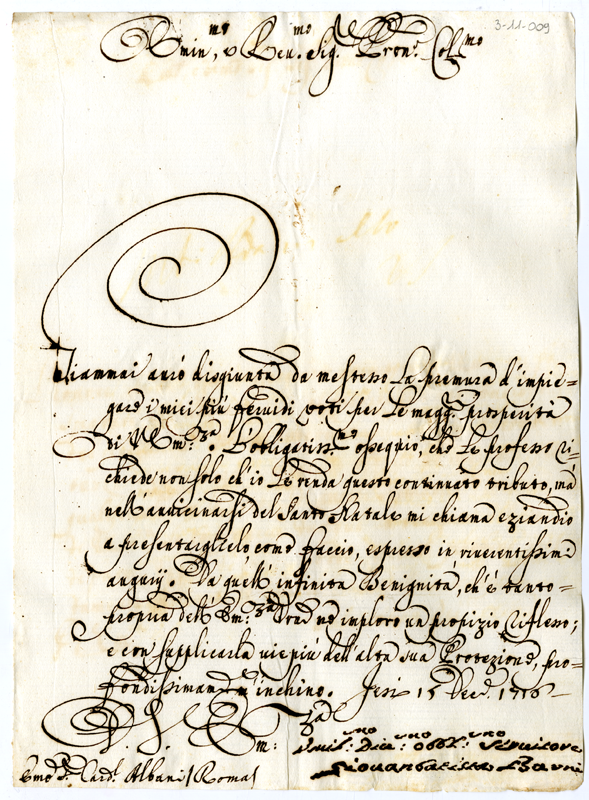 3-11-009
Emin.mo, e Rev.mo Sig.r Pron.e Col.mo
Giammai avrò disgiunta da me stesso la premura d'impie=
gare i miei più fervidi voti per le magg.ri prosperità
di V. Em.za. L'obligatiss.mo ossequio, che le professo ri=
chiede non solo ch'io le renda questo continuato tributo, mà
nell'avvicinarsi del Santo Natale mi chiama eziandio
a presentarglielo, come faccio, espresso in riverentissimi
augurij. Da quell'infinita Benignità, ch'è tanto=
propria dell'Em.za Vra ne imploro un propizio riflesso;
e con supplicarla viepiù dell'alta sua Protezione, pro=
fondissimam.te m'inchino. Jesi 15 Dec.re 1716
D. V. Em.za
Umil.mo Div.mo Obbl.mo Servitore
Giovanbatista
Emo S.r Card.l Albani / Roma /